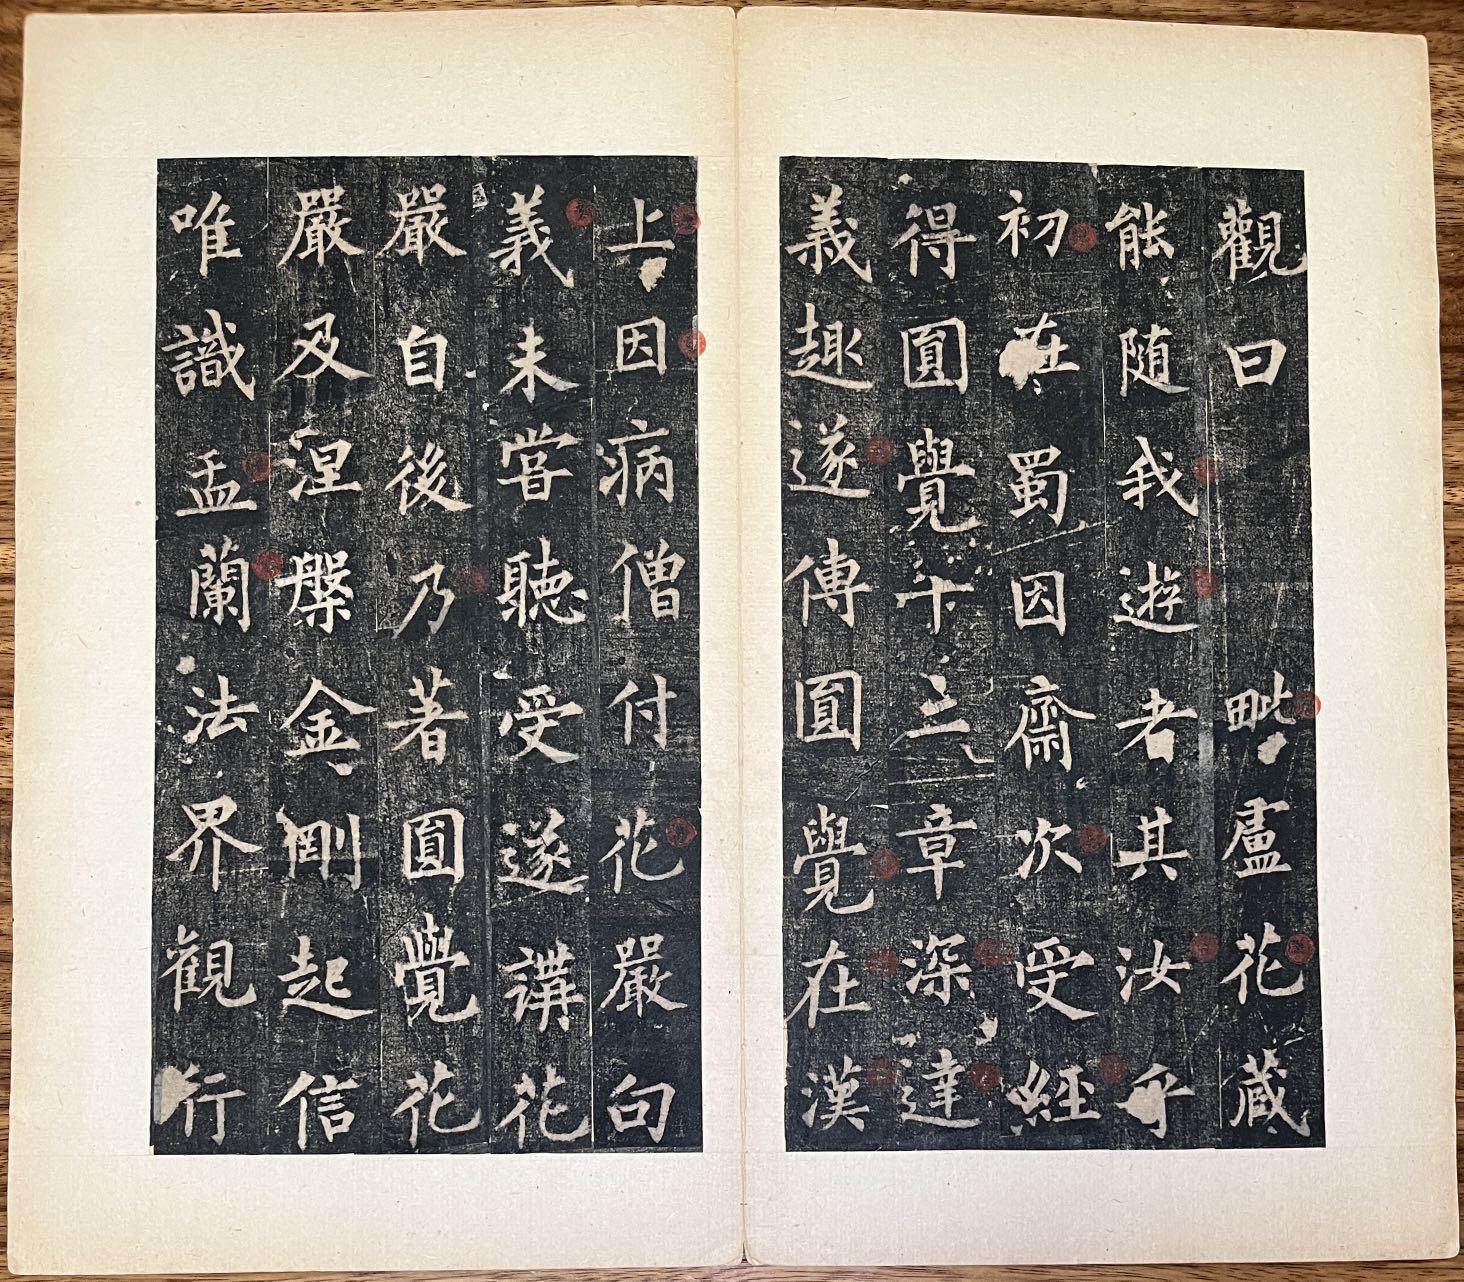 觀曰毗盧花藏
能随我遊者其汝乎
初在蜀因齋次受經
得圓覺十三章深達
義趣遂傳圓覺在漢
上因病僧付花嚴句
義未甞聽受遂講花
嚴自後乃著圓覺花
嚴及涅槃金剛起信
唯識盂蘭法界觀行